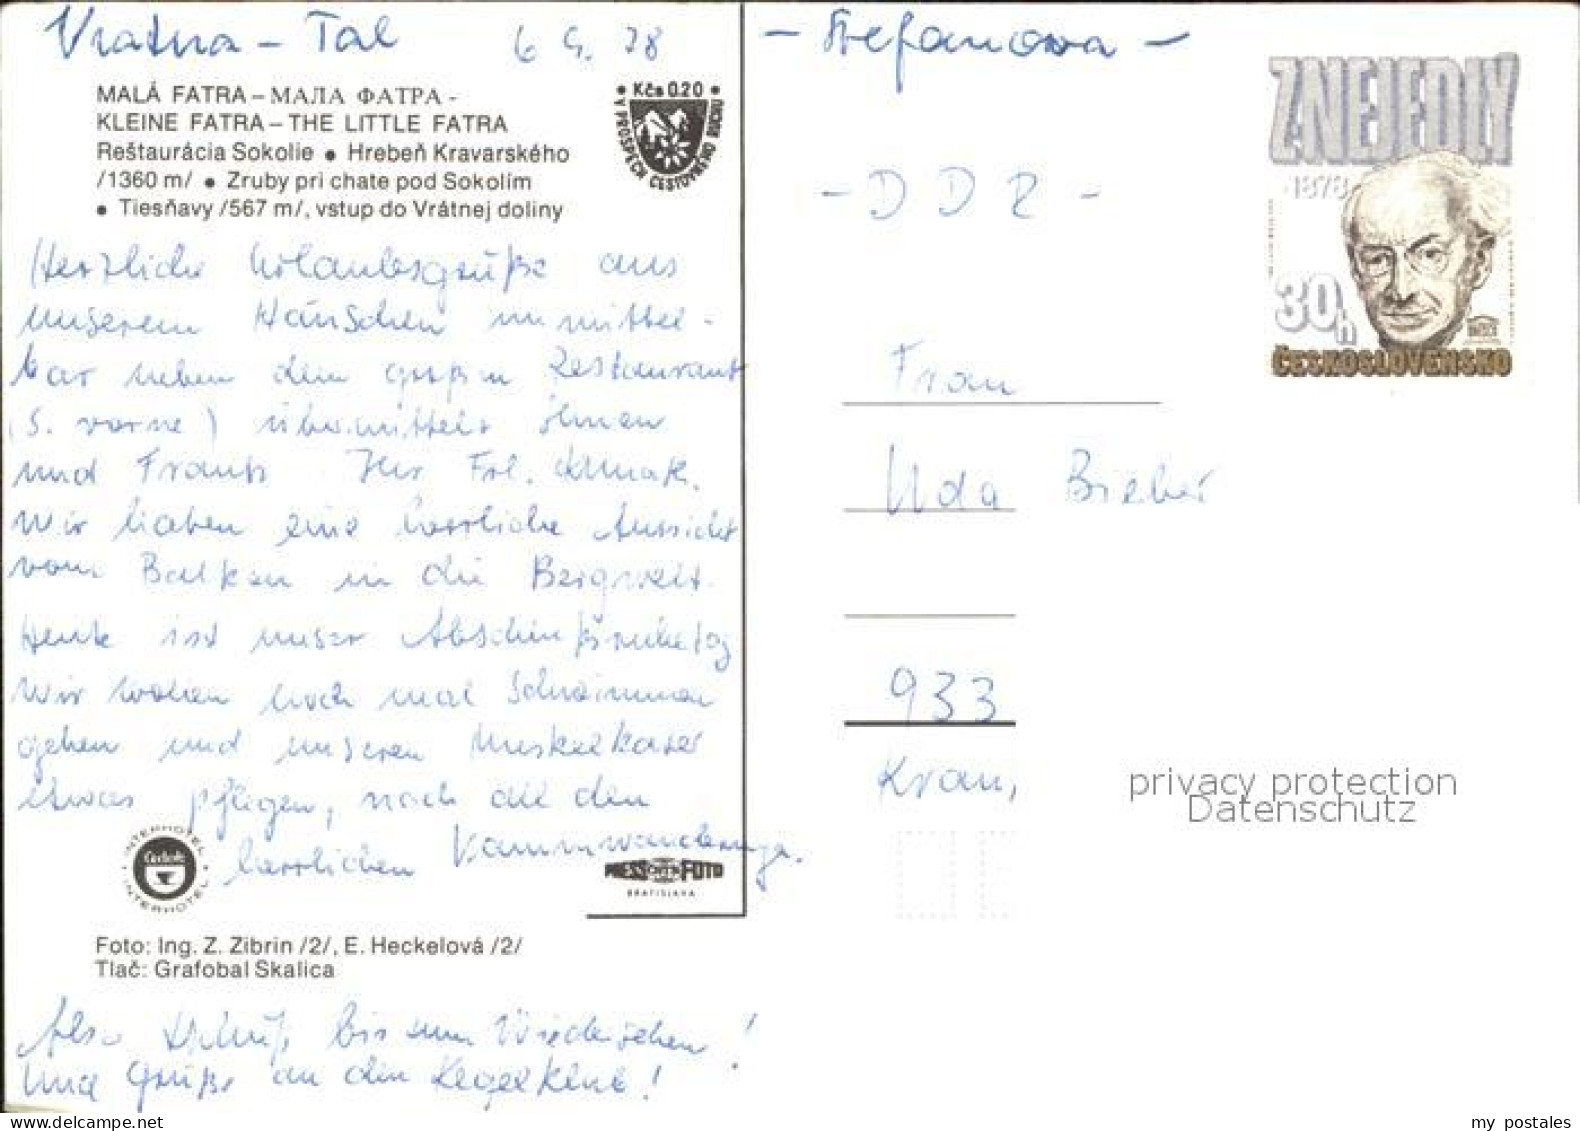 Vratna - Tal 6 9. 78 - Stefanowa -
MALÁ FATRA – МАЛА ФАТРА -
KLEINE FATRA – THE LITTLE FATRA
Reštaurácia Sokolie ● Hrebeň Kravarského
/1360 m/ ● Zruby pri chate pod Sokolím
● Tiesňavy /567 m/, vstup do Vrátnej doliny
● Kčs 0.20 ●
V PROSPECH CESTOVNÉHO RUCHU
Herzliche Urlaubsgrüße aus
unserem Häuschen unmittel-
bar neben dem großen Restaurant
(s. vorne) übermittelt Ihnen
und Ihr Frl.
Wir haben eine herrliche Aussicht
vom Balkon in die Bergwelt.
Heute ist unser Abschiedsruhetag
Wir wollen noch mal Schwimmen
gehen und unseren Muskelkater
etwas pflegen, nach all den
herrlichen Kammwanderungen.
INTERHOTEL
INTERHOTEL
PRESSFOTO
BRATISLAVA
Foto: Ing. Z. Zibrin /2/, E. Heckelová /2/
Tlač: Grafobal Skalica
Also Tschüß bis zum Wiedersehen!
Und Grüße an den Kegelklub!
Z. NEJEDLÝ
1878
30h
ČESKOSLOVENSKO
- DDR -
Frau
Uda Bieber
933
Kran
privacy protection
Datenschutz
my postales